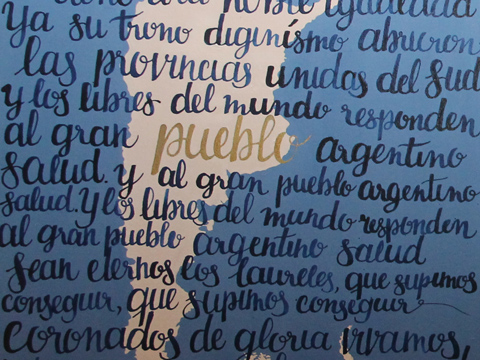 noble igualdad
Ya su trono diginísimo abrieron
las provincias unidas del Sud
y los libres del mundo responden
al gran pueblo argentino
salud. y al gran pueblo argentino
salud. Y los libres del mundo responden
al gran pueblo argentino salud
Sean eternos los laureles, que supimos
conseguir, que supimos conseguir
coronados de gloria vivamos,